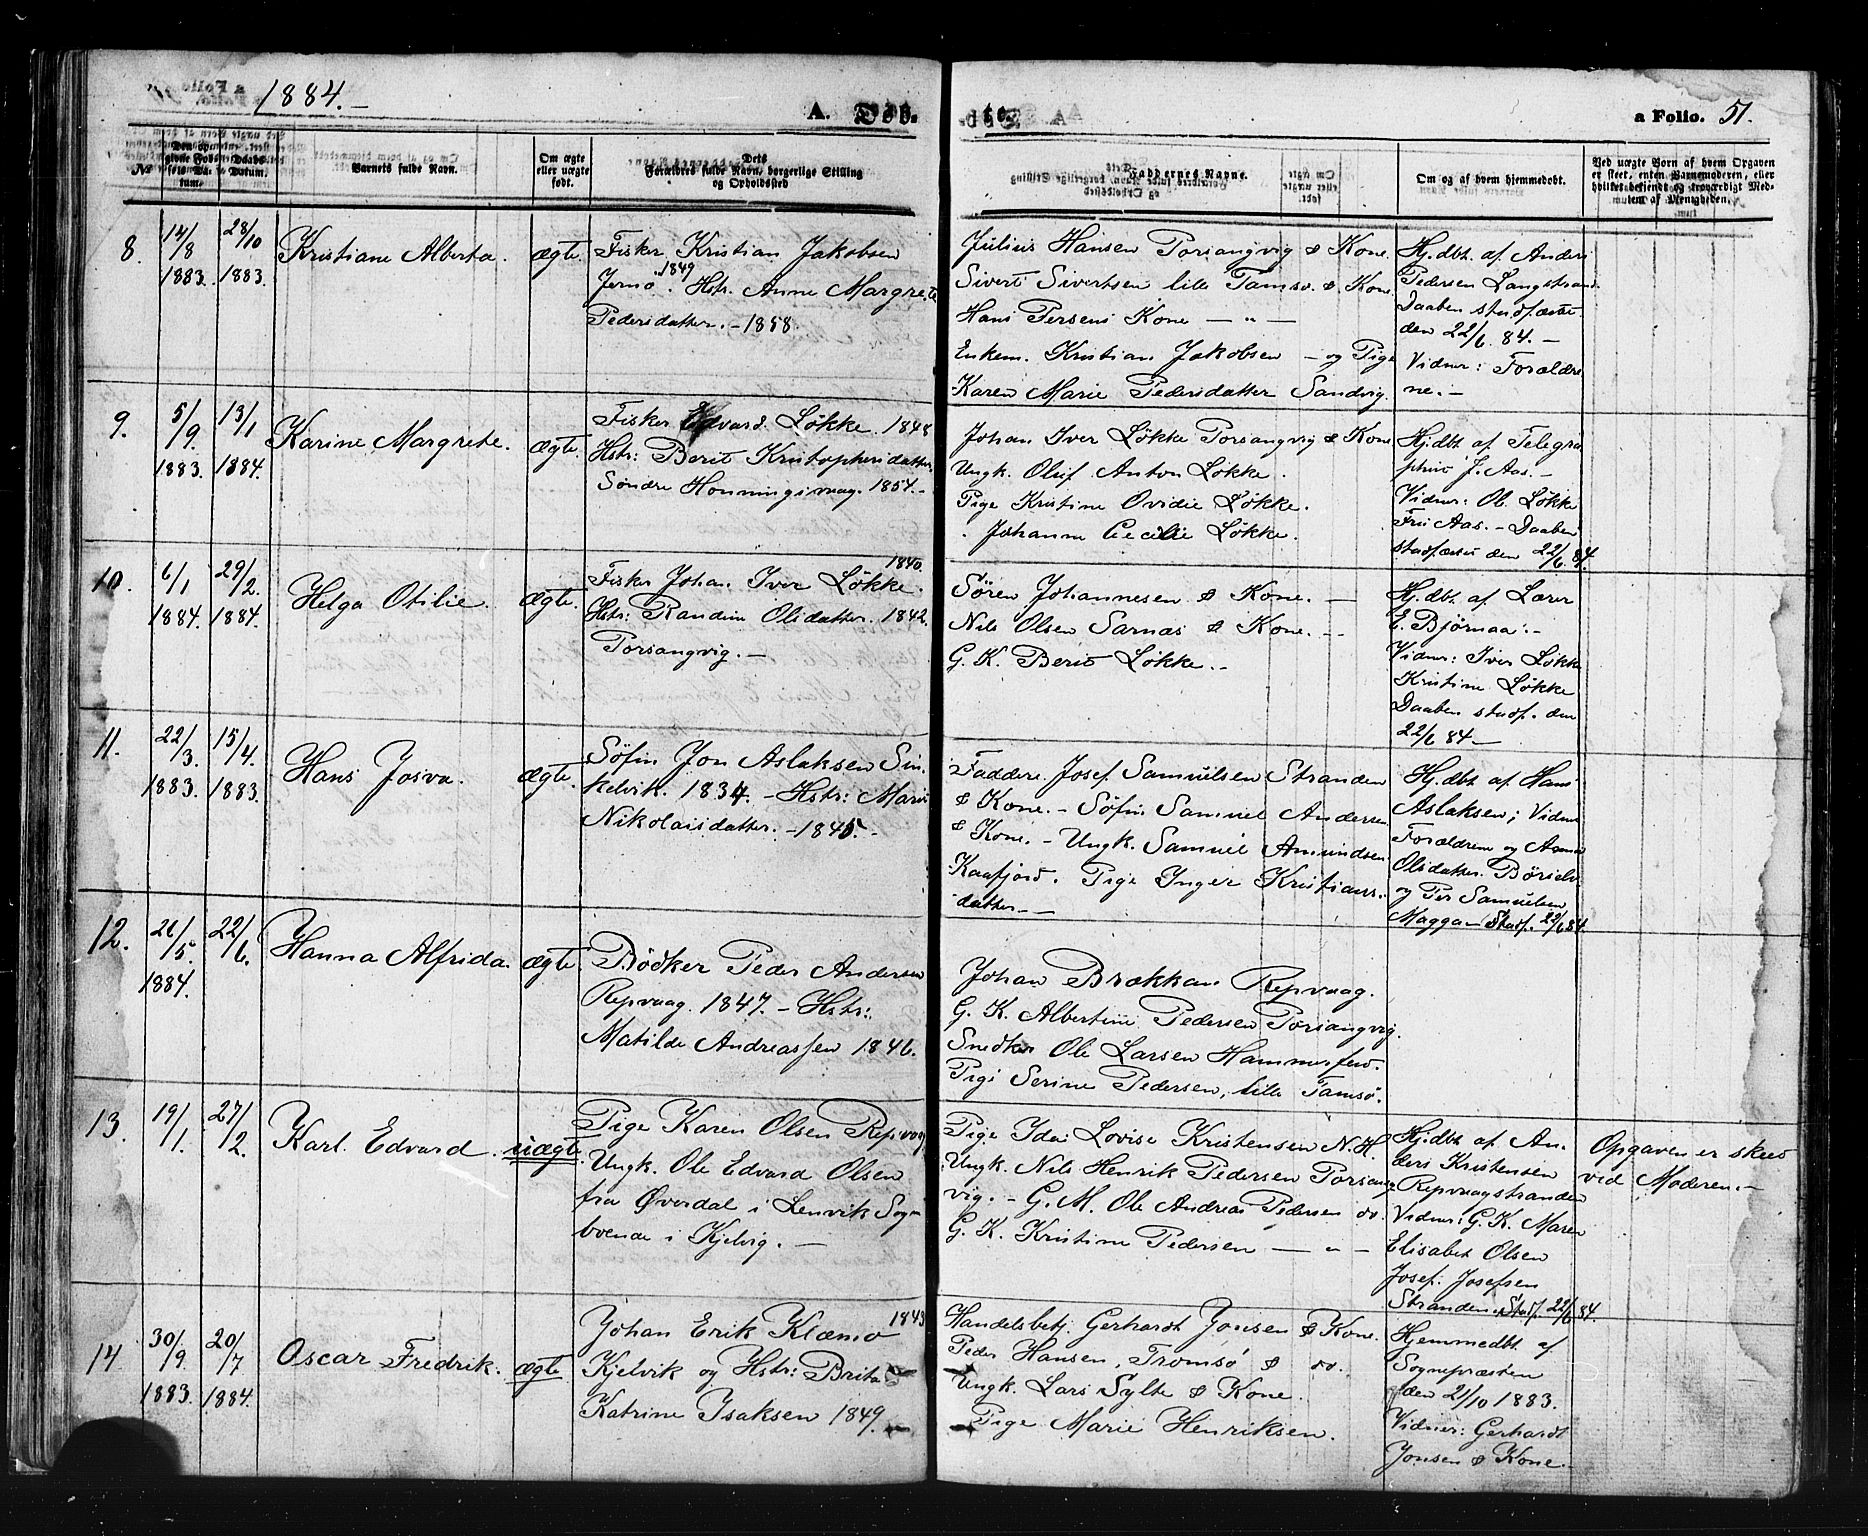 1884.-
A. Døb.
te.
a Folio. 51.
No
Den opgivne Fødselsdatum.
Daabsdatum.
Barnets fulde Navn.
Om ægte eller uægte født.
Dets Forældres fulde Navn, borgerlige Stilling og Opholdssted
Faddernes Navne.
Om og af hvem hjemmedøbt.
Ved uægte Børn af hvem Opgaven
er skeet, enten Barnemoderen, eller
hvilket bekjendt og troværdigt Med-
lem af Menigheden.
8.
14/8
1883.
28/10
1883.
Kristiane Alberta.
ægte.
Fisker Kristian Jakobsen
Jernö. 1849 Hstr. Anne Margrete
Pedersdatter. - 1858.
Julius Hansen Porsangvig & Kone.
Sivert Sivertsen lille Tamsö. & Kone
Hans Persens Kone — " —
Enkem. Kristian Jakobsen — og Pige
Karen Marie Pedersdatter Sandvig.
Hj.dbt. af Anders
Pedersen Langstrand
Daaben stadfæstet
den 22/6 84. -
Vidner: Forældre
ne. -
9.
5/9
1883.
13/1
1884.
Karine Margrete.
ægte.
Fisker Edvard Løkke. 1848
Hstr: Berit Kristophersdatter.
Søndre Honningsvaag. 1854. -
Johan Iver Løkke Porsangvig & Kone
Ungk. Oluf Anton Løkke.
Pige Kristine Ovidie Løkke.
" Johanne Cecilie Løkke.
Hj.dbt. af Telegra
phist J. Aas. -
Vidner: Ob. Løkke
Fru Aas. - Daaben
stadfæstet den 22/6 84.
10.
6/1
1884.
29/2.
1884.
Helga Otilie.
ægte.
Fisker Johan Iver Løkke. 1840.
Hstr: Randine Olsdatter. 1842.
Porsangvig. -
Sören Johannesen & Kone. —
Nils Olsen Sarnæs & Kone. --
G. K. Berit Løkke. -
Hj.dbt. af Lærer
E. Bjørnaa. -
Vidner: Iver Løkke
Kristine Løkke
Daaben stadf. den
22/6 84 -
11.
22/3.
1883.
15/4.
1883.
Hans Josva.
ægte.
Søfin Jon Aslaksen Sin-
kelvik. 1834. - Hstr: Marie
Nikolaisdatter. - 1845. -
Faddere. Josef Samuelsen Stranden
& Kone. - Søfin Samuel Andersen
& Kone. - Ungk. Samuel Amundsen
Kaafjord. Pige Inger Kristians-
datter —
Hj.dbt. af Hans
Aslaksen; Vidner
Forældrene og Anna
Olsdatter Børselv
og Per Samuelsen
Magga - Stadf. 22/6 84.
12.
26/5.
1884.
22/6.
Hanna Alfrida.
ægte.
Bødker Peder Andersen
Repvaag. 1847. - Hstr:
Matilde Andreassen 1846.
Johan Brækkan Repvaag.
G. K. Albertine Pedersen Porsangvig.
Snedker Ole Larsen Hammerfest.
Pige Serine Pedersen, lille Tamsø.
13.
19/1.
27/2.
Karl Edvard.
uægte.
Pige Karen Olsen Repvaag
Ungk. Ole Edvard Olsen
fra Øverdal i Lenvik Sogn
boende i Kjelvig. -
Pige Ida Lovise Kristensen N. H.
Ungk. Nils Henrik Pedersen Porsang
vig. - G. M. Ole Andreas Pedersen do.
G. K. Kristine Pedersen — " —
Hj.dbt. af An-
ders Kristensen
Repvaagstranden
Vidner: G. K. Maren
Elisabet Olsen
Josef Josefsen
Stranden. Stadf. 22/6 84.
Opgaven er skeed
ved Moderen. -
14
30/9.
1883.
20/7
1884.
Oscar Fredrik.
ægte
Johan Erik Klæmo 1843
Kjelvik og Hstr: Brita
Katrine Isaksen 1849.
Handelsbetj. Gerhardt Jonsen & Kone.
Peder Hansen, Tromsö & do.
Ungk. Lars Sylte & Kone.
Pige Marie Henriksen.
Hjemmedbt. af
Sognepræsten
den 21/10 1883.
Vidner: Gerhardt
Jonsen & Kone. -